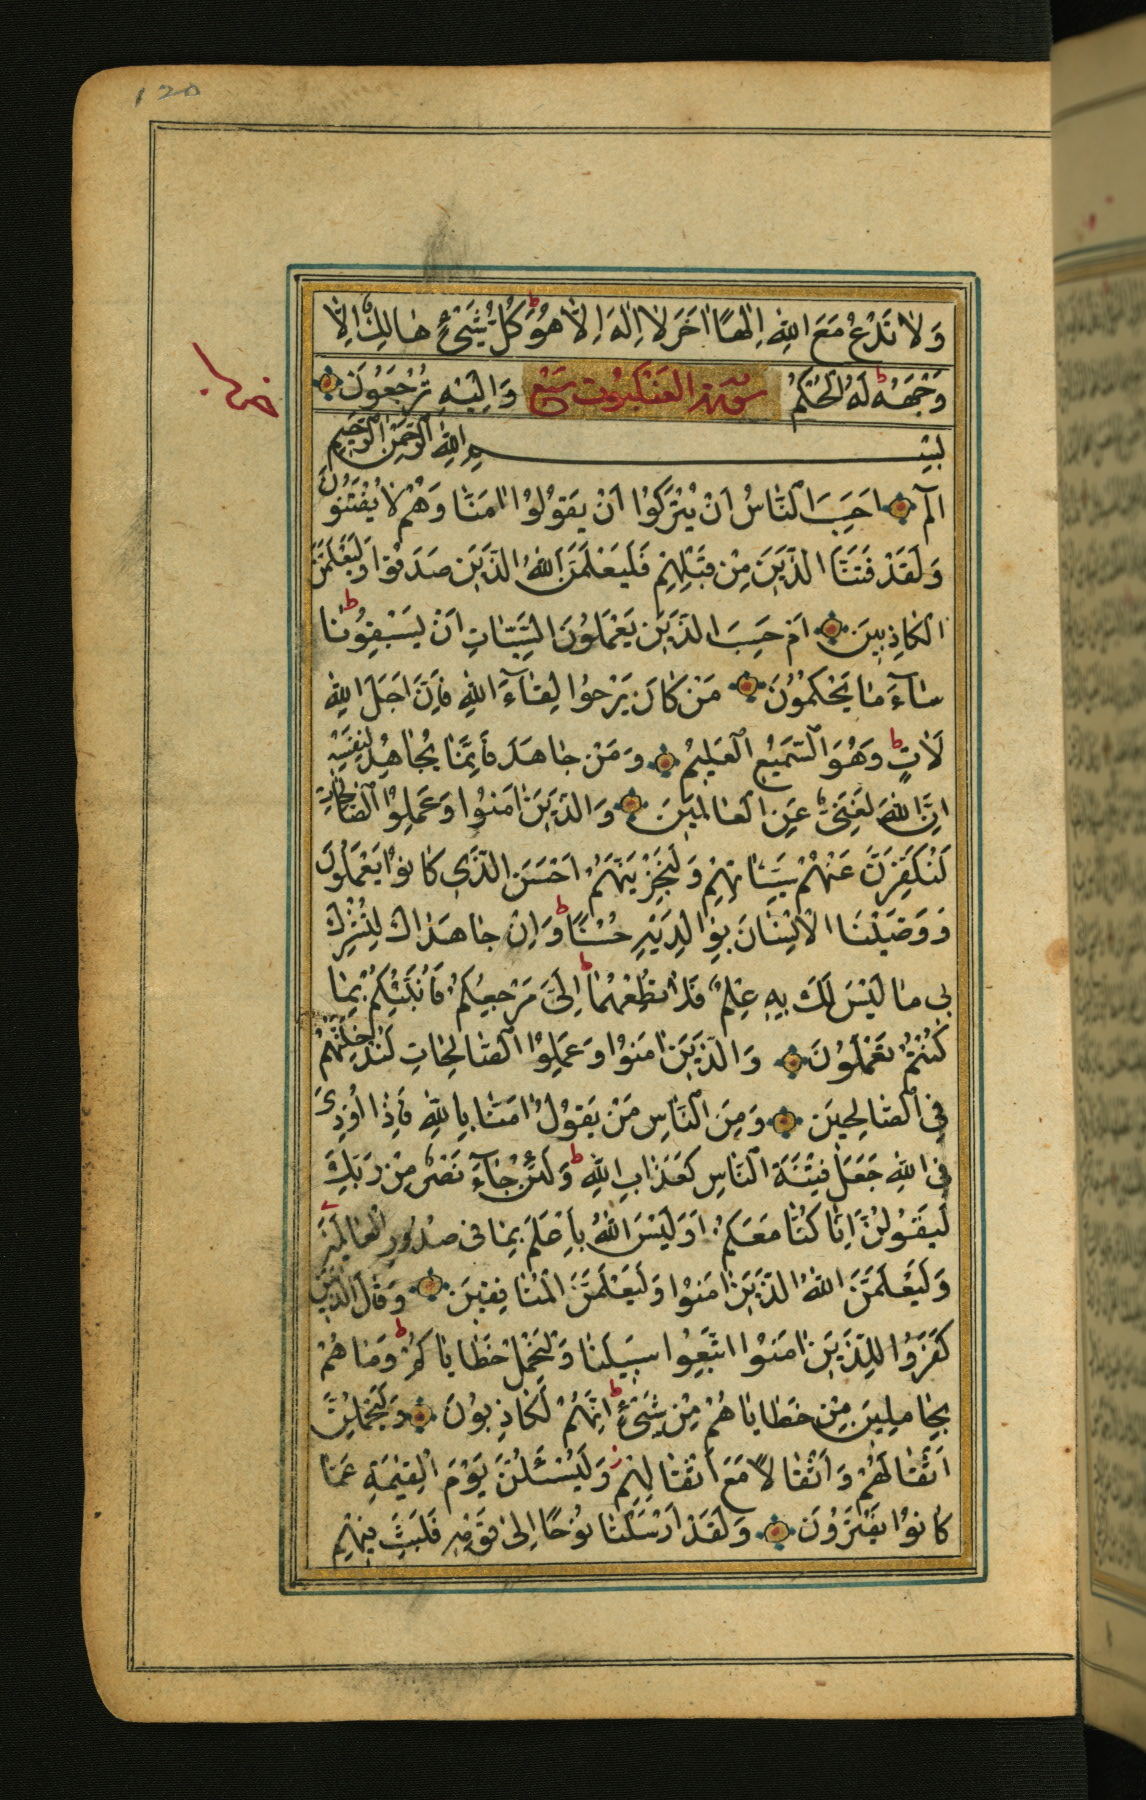 120
وَلَا تَدْعُ مَعَ اللّٰهِ اِلٰهًا اٰخَرَ لَا اِلٰهَ اِلَّا هُوَ ط كُلُّ شَىْءٍ هَالِكٌ اِلَّا
وَجْهَهُ ط لَهُ الْحُكْمُ وَاِلَيْهِ تُرْجَعُونَ
سورة العنكبوت
بِسْمِ اللّٰهِ الرَّحْمٰنِ الرَّحِيمِ
الٓمٓ اَحَسِبَ النَّاسُ اَنْ يُتْرَكُوا اَنْ يَقُولُوا اٰمَنَّا وَهُمْ لَا يُفْتَنُونَ
وَلَقَدْ فَتَنَّا الَّذِينَ مِنْ قَبْلِهِمْ فَلَيَعْلَمَنَّ اللّٰهُ الَّذِينَ صَدَقُوا وَلَيَعْلَمَنَّ
الْكَاذِبِينَ اَمْ حَسِبَ الَّذِينَ يَعْمَلُونَ السَّيِّئَاتِ اَنْ يَسْبِقُونَا ط
سَآءَ مَا يَحْكُمُونَ مَنْ كَانَ يَرْجُوا لِقَآءَ اللّٰهِ فَاِنَّ اَجَلَ اللّٰهِ
لَاٰتٍ ط وَهُوَ السَّمِيعُ الْعَلِيمُ وَمَنْ جَاهَدَ فَاِنَّمَا يُجَاهِدُ لِنَفْسِهِ
اِنَّ اللّٰهَ لَغَنِىٌّ عَنِ الْعَالَمِينَ وَالَّذِينَ اٰمَنُوا وَعَمِلُوا الصَّالِحَاتِ
لَنُكَفِّرَنَّ عَنْهُمْ سَيِّئَاتِهِمْ وَلَنَجْزِيَنَّهُمْ اَحْسَنَ الَّذِى كَانُوا يَعْمَلُونَ
وَوَصَّيْنَا الْاِنْسَانَ بِوَالِدَيْهِ حُسْنًا ط وَاِنْ جَاهَدَاكَ لِتُشْرِكَ
بِى مَا لَيْسَ لَكَ بِهِ عِلْمٌ فَلَا تُطِعْهُمَا ط اِلَىَّ مَرْجِعُكُمْ فَاُنَبِّئُكُمْ بِمَا
كُنْتُمْ تَعْمَلُونَ وَالَّذِينَ اٰمَنُوا وَعَمِلُوا الصَّالِحَاتِ لَنُدْخِلَنَّهُمْ
فِى الصَّالِحِينَ وَمِنَ النَّاسِ مَنْ يَقُولُ اٰمَنَّا بِاللّٰهِ فَاِذَا اُوذِىَ
فِى اللّٰهِ جَعَلَ فِتْنَةَ النَّاسِ كَعَذَابِ اللّٰهِ ط وَلَئِنْ جَآءَ نَصْرٌ مِنْ رَبِّكَ
لَيَقُولُنَّ اِنَّا كُنَّا مَعَكُمْ اَوَلَيْسَ اللّٰهُ بِاَعْلَمَ بِمَا فِى صُدُورِ الْعَالَمِينَ
وَلَيَعْلَمَنَّ اللّٰهُ الَّذِينَ اٰمَنُوا وَلَيَعْلَمَنَّ الْمُنَافِقِينَ وَقَالَ الَّذِينَ
كَفَرُوا لِلَّذِينَ اٰمَنُوا اتَّبِعُوا سَبِيلَنَا وَلْنَحْمِلْ خَطَايَاكُمْ ط وَمَا هُمْ
بِحَامِلِينَ مِنْ خَطَايَاهُمْ مِنْ شَىْءٍ ط اِنَّهُمْ لَكَاذِبُونَ وَلَيَحْمِلُنَّ
اَثْقَالَهُمْ وَاَثْقَالًا مَعَ اَثْقَالِهِمْ ز وَلَيُسْئَلُنَّ يَوْمَ الْقِيٰمَةِ عَمَّا
كَانُوا يَفْتَرُونَ وَلَقَدْ اَرْسَلْنَا نُوحًا اِلَى قَوْمِهِ فَلَبِثَ فِيهِمْ